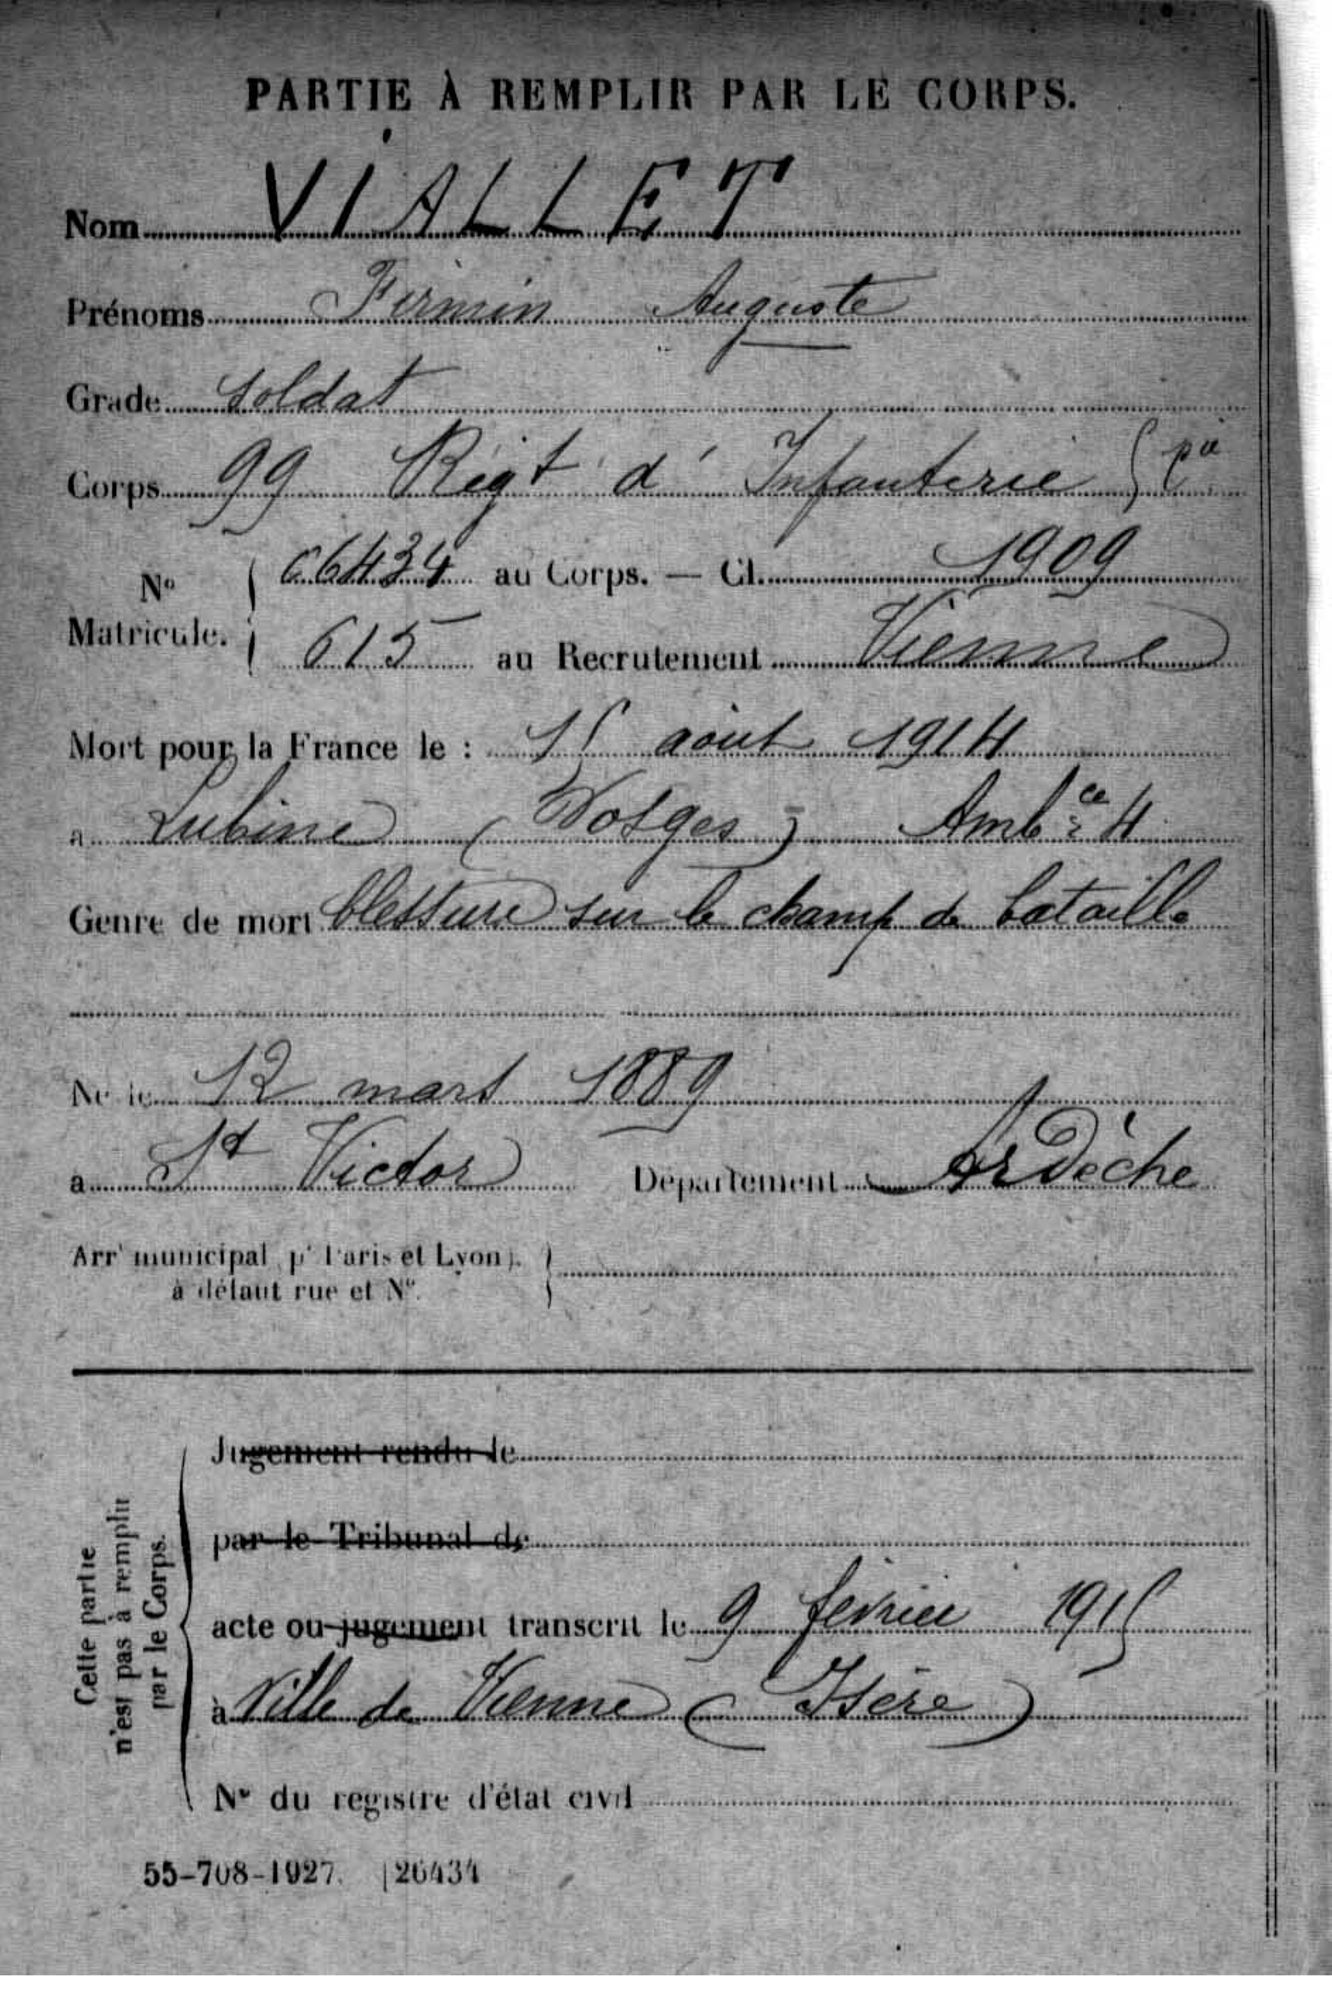 PARTIE À REMPLIR PAR LE CORPS.
Nom VIALLET
Prénoms Firmin Auguste
Grade Soldat
Corps 99 Régt d'Infanterie
No Matricule. 06434 au Corps. — Cl. 1909
615 au Recrutement Vienne
Mort pour la France le : 15 août 1914
a Lubine (Vosges) Ambce 4
Genre de mort blessure sur le champ de bataille
Né le 12 mars 1889
a St Victor Département Ardèche
Arrt municipal pr Paris et Lyon),
à défaut rue et No.
Cette partie
n'est pas à remplir
par le Corps.
Jugement rendu le
par le Tribunal de
acte ou jugement transcrit le 9 février 1915
à Ville de Vienne (Isère)
No du registre d'état civil
55-708-1927. [26434